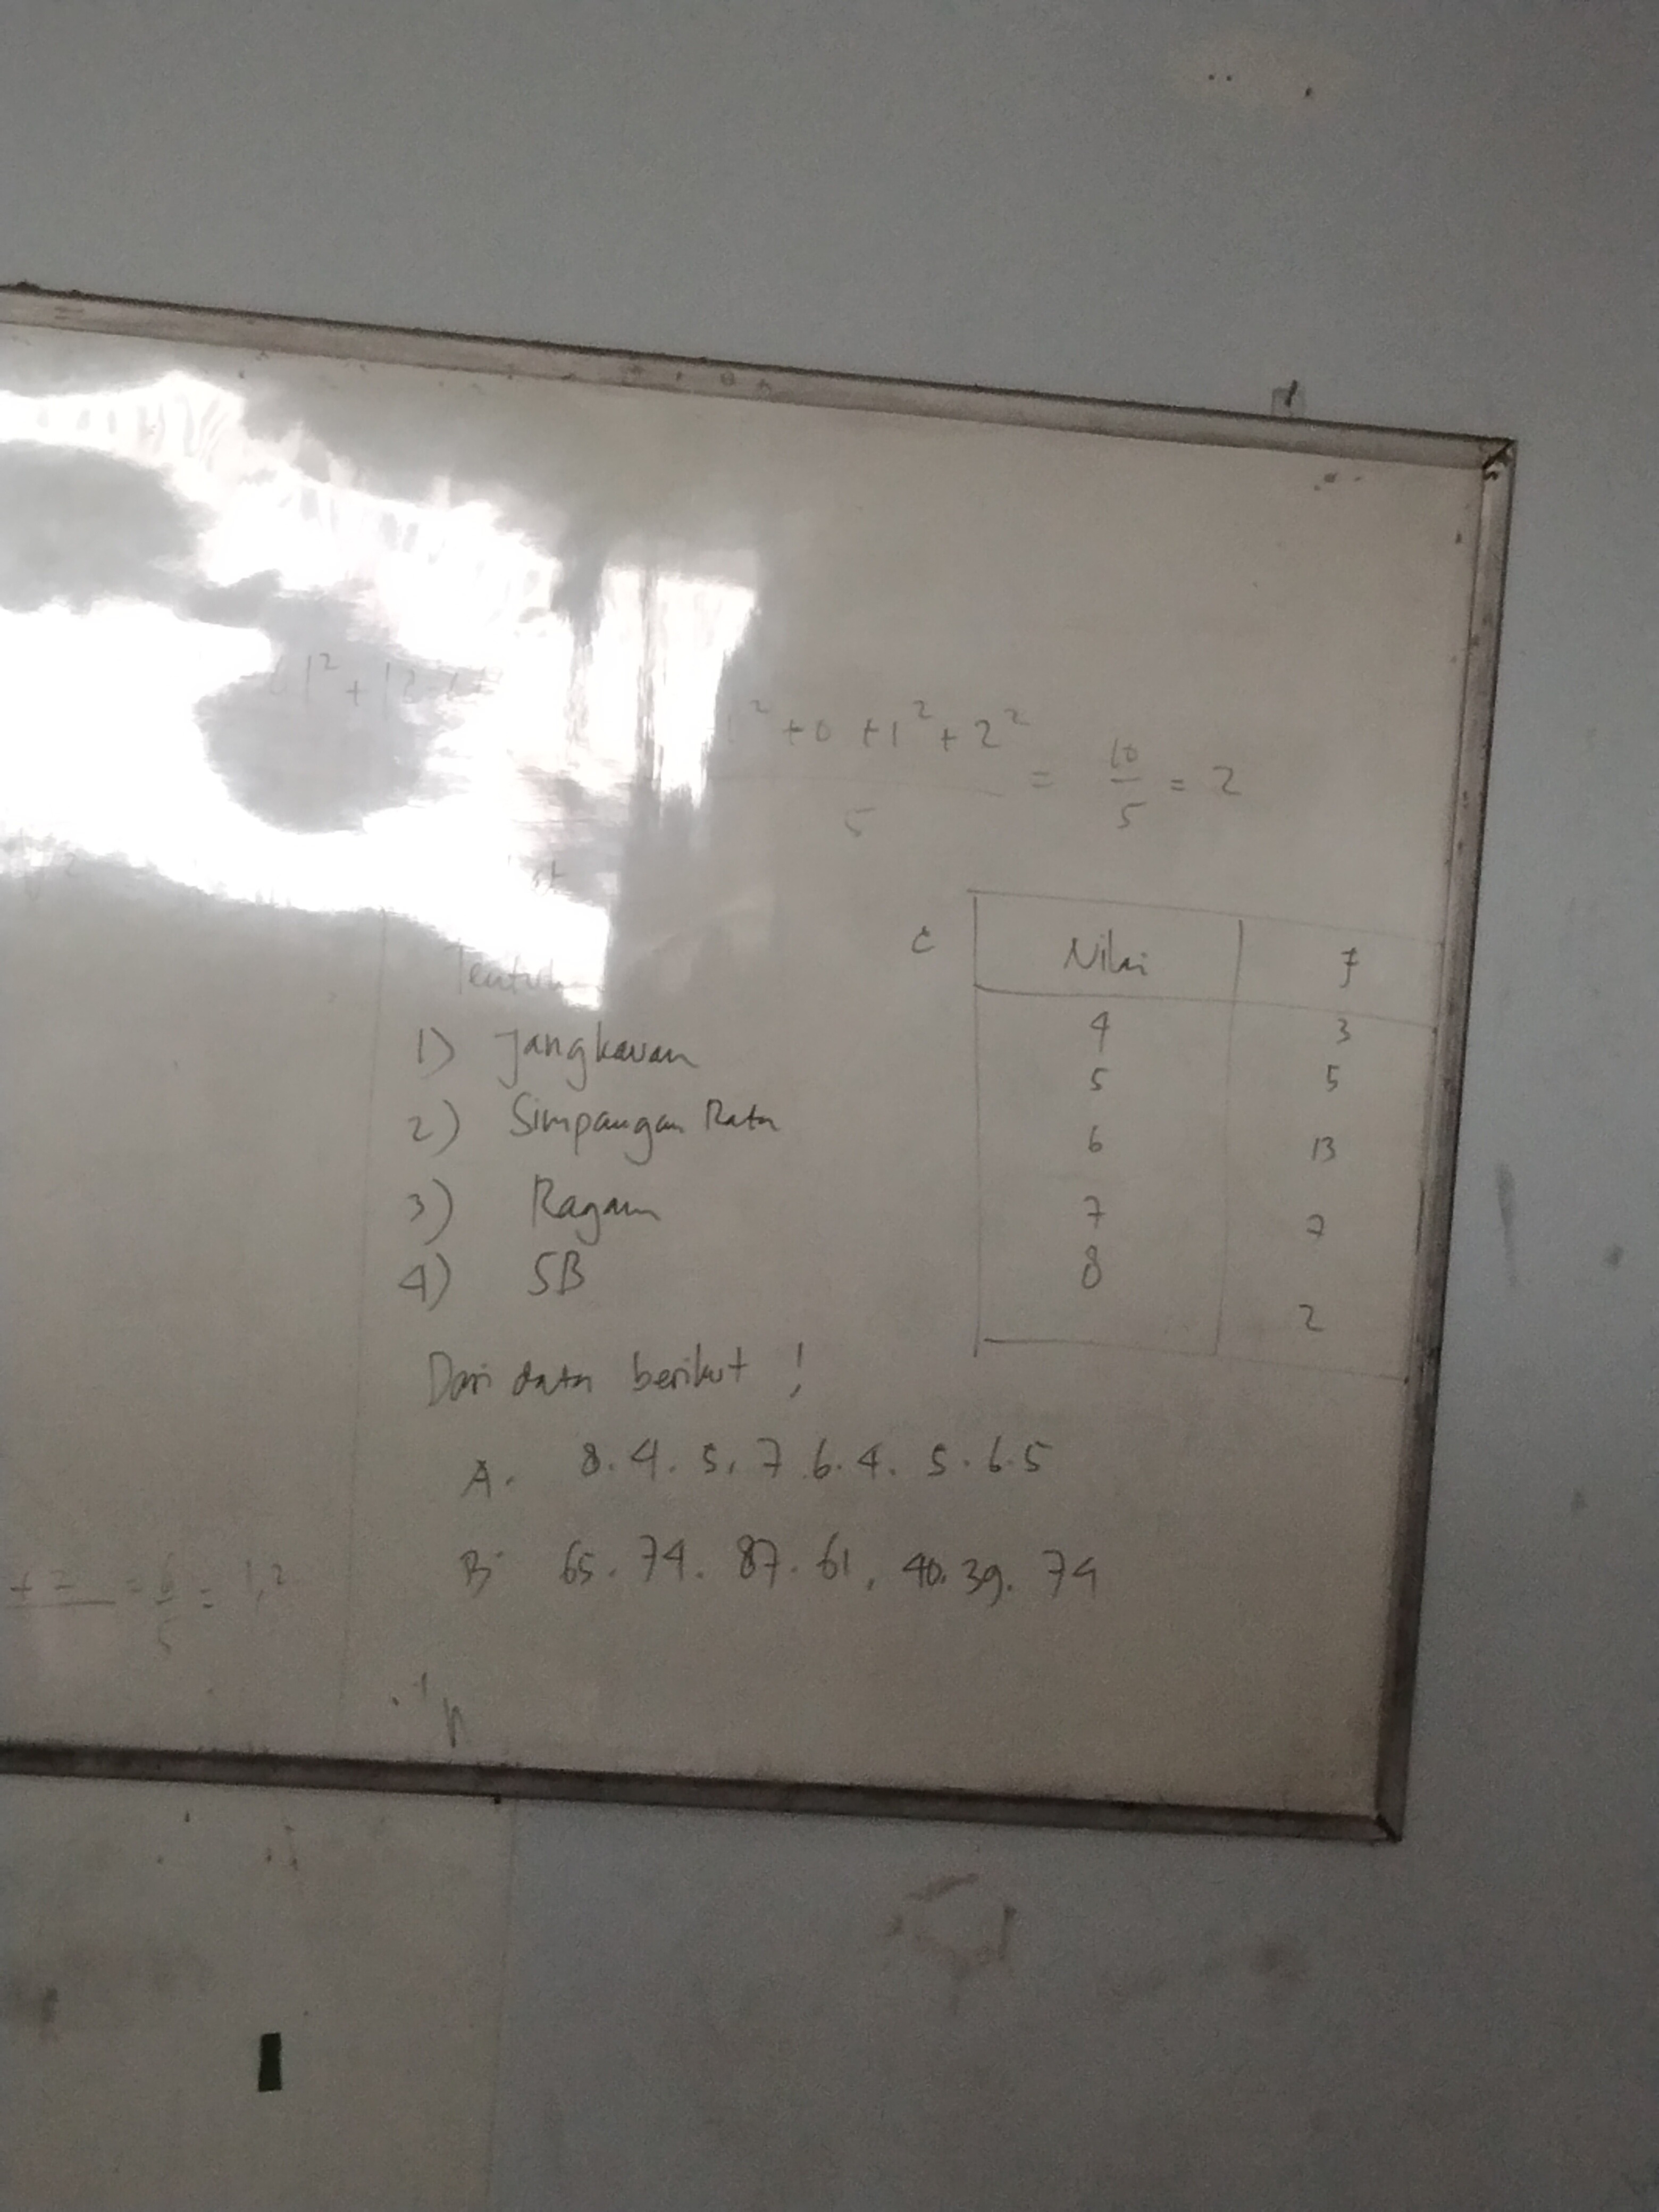 1² + 0 + 1² + 2² / 5 = 10/5 = 2
Tentuk
1) Jangkauan
2) Simpangan Rata
3) Ragam
4) SB
Dari data berikut !
A. 8. 4. 5. 7. 6. 4. 5. 6. 5
B. 65. 74. 87. 61. 40. 39. 74
C
Nilai f
4 3
5 5
6 13
7 7
8 2
= 6/5 = 1,2